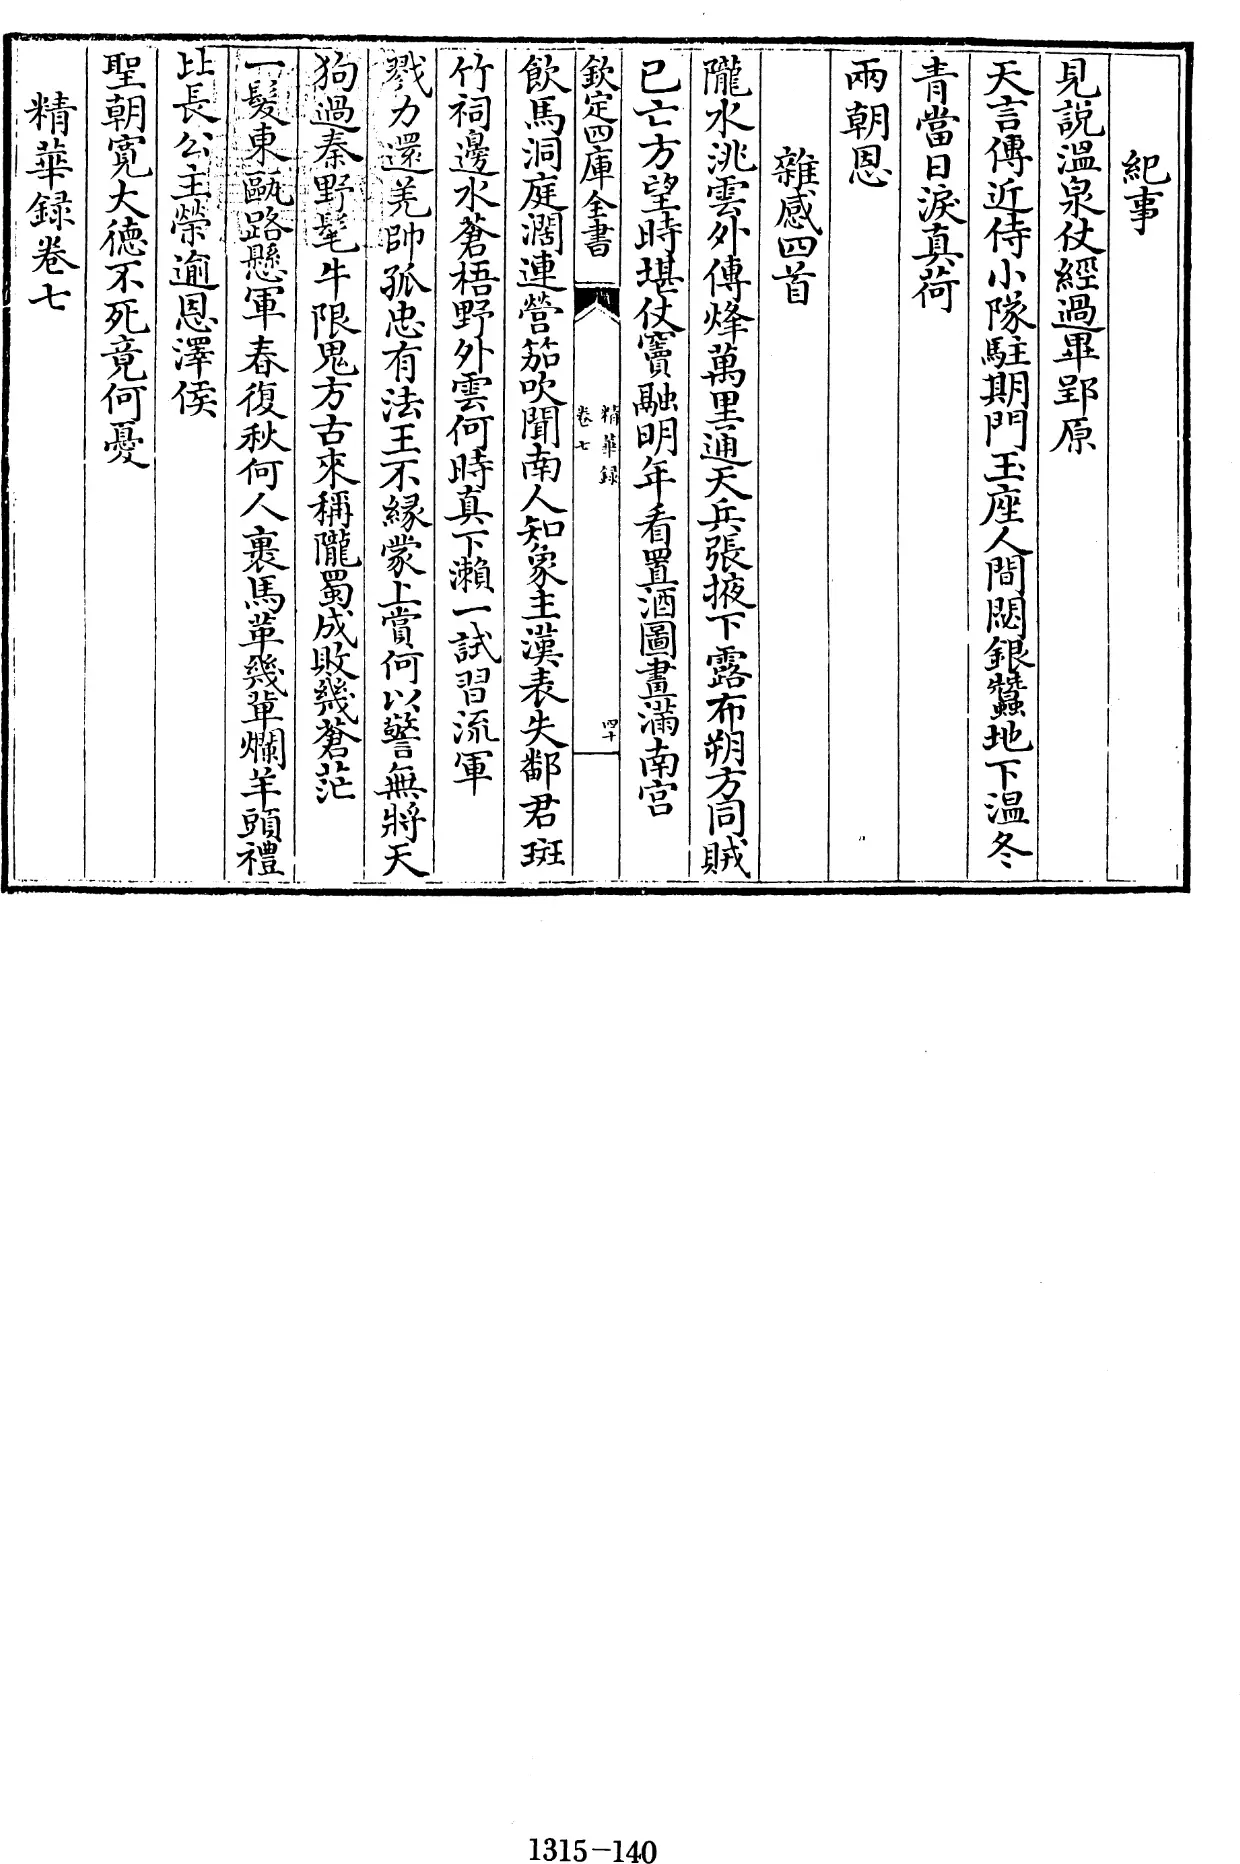 紀事
見說溫泉仗經過畢郢原
天言傳近侍小隊駐期門玉座人間閟銀蠶地下溫冬
青當日淚真荷
兩朝恩
雜感四首
隴水洮雲外傳烽萬里通天兵張掖下露布朔方同賊
已亡方望時堪仗竇融明年看置酒圖畫滿南宮
欽定四庫全書
精華録
卷七
四十
飲馬洞庭濶連營笳吹聞南人知象主漢表失鄱君斑
竹祠邊水蒼梧野外雲何時真下瀨一試習流軍
戮力還羌帥孤忠有法王不緣蒙上賞何以警無將天
狗過秦野髦牛限鬼方古來稱隴蜀成敗幾蒼茫
一髮東甌路懸軍春復秋何人裹馬革幾輩爛羊頭禮
比長公主榮逾恩澤侯
聖朝寛大德不死竟何憂
精華録卷七
1315-140